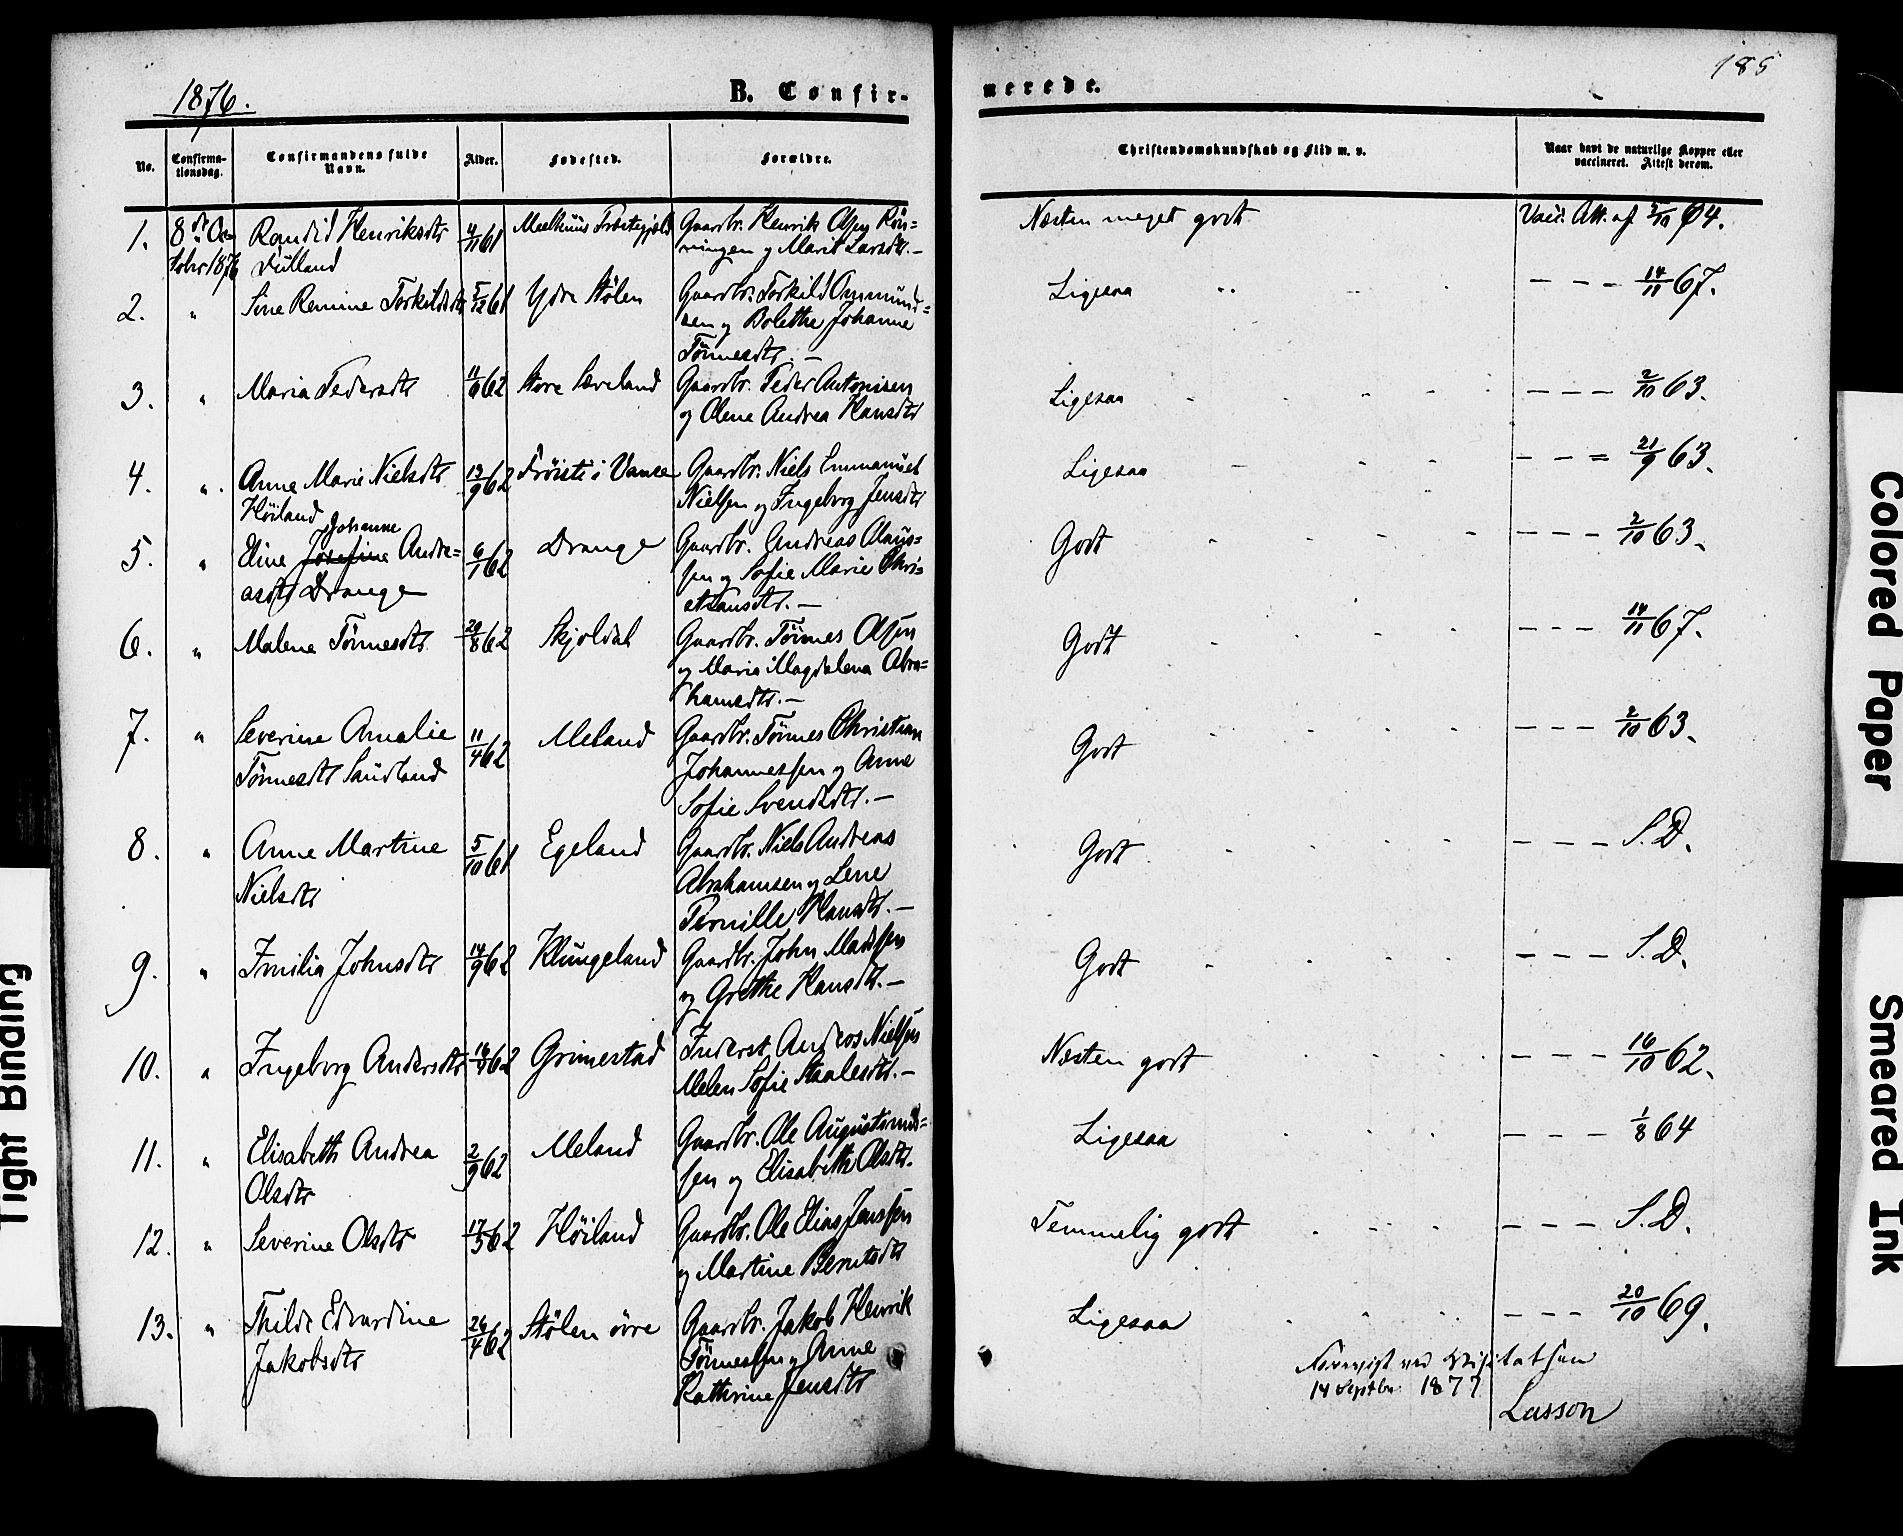 185
1876.
B. Confir-
merede.
No.
Confirma-
tionsdag.
Confirmandens fulde
Navn.
Alder.
Fødested.
Forældre.
Christendomskundskab og Flid m. v.
Naar havt de naturlige Kopper eller
vaccineret. Attest derom.
1. 8de Oc- Randid Henriksdtr 4/11 61 Meelhuus Præstegjeld Gaardbr. Henrik Olsen Røn- Næsten meget godt Vacc. Att. af 2/10 64.
tobr 1876 ningen og Marit Larsdtr. –
2. " Sine Remine Torkildsdtr 5/12 61 Ydre Stølen Gaardbr. Torkild Ommund= Ligesaa – – – 14/11 67.
sen og Bolethe Johanne
Tønnesdtr. –
3. " Maria Pedersdtr 11/9 62 Store Sæveland Gaardbr. Peder Antonisen Ligesaa – – – 2/10 63.
og Olene Andrea Hansdtr
4. " Anne Marie Nielsdtr 13/9 62 i Vanse Gaardbr. Niels Emmanuel Ligesaa – – = 21/9 63.
Høiland Nielsen og Ingeborg Jensdtr
Johanne
5. " Eline Josefine Andre= 6/1 62 Drange Gaardbr. Andreas Claus= Godt – – – 2/10 63.
asdtr Drange sen og Sofie Marie Chri=
stiansdtr. –
6. " Malene Tønnesdtr 20/8 62 Skjoldal Gaardbr. Tønnes Olsen Godt – – – 14/11 67.
og Maria Magdalena Abra=
hamsdtr. –
7. " Severine Amalie 11/4 62 Meland Gaardbr. Tønnes Christian Godt – – – 2/10 63.
Tønnesdtr Sandland Johannessen og Anne
Sofie Svendsdtr. –
8. " Anne Martine 5/10 61 Egeland Gaardbr. Niels Andreas Godt – – – S.D.
Nielsdtr Abrahamsen og Lene
Pernille Hansdtr. –
9. " Emilia Johnsdtr 14/9 62 Klungeland Gaardbr. John Madssen Godt – – – S.D.
og Grethe Hansdtr. –
10. " Ingeborg Andersdtr 62 Grimestad Inderst Anders Nielsen Næsten godt – – – 16/10 62.
Melen Sofie Staalesdtr. –
11. " Elisabeth Andrea 2/9 62 Meland Gaardbr. Ole Augustinus= Ligesaa – – – 1/8 64
Olsdtr sen og Elisabeth Olsdtr.
12. " Severine Olsdtr 17/5 62 Høiland Gaardbr. Ole Elias Jenssen Temmelig godt – – – S.D.
og Martine Berntsdtr
13. " Thilde Edvardine 26/4 62 Stølen øvre Gaardbr. Jakob Henrik Ligesaa – – – 20/10 69.
Jakobsdtr Tønnessen og Anne
Kathrine Jensdtr
Forevist ved Visitatsen
14 Septbr. 1877
Lasson
Colored Paper
Smeared Ink
Tight Binding